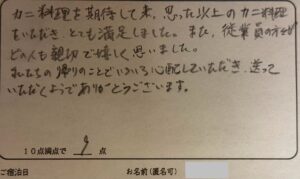 カニ料理を期待して来、思った以上のカニ料理
をいただき、とても満足しました。また、従業員の方々が
どの人も親切で嬉しく思いました。
私たちの帰りのことでいろいろ心配していただき、送って
いただくようでありがとうございます。
10点満点で 9 点
ご宿泊日
お名前(匿名可)